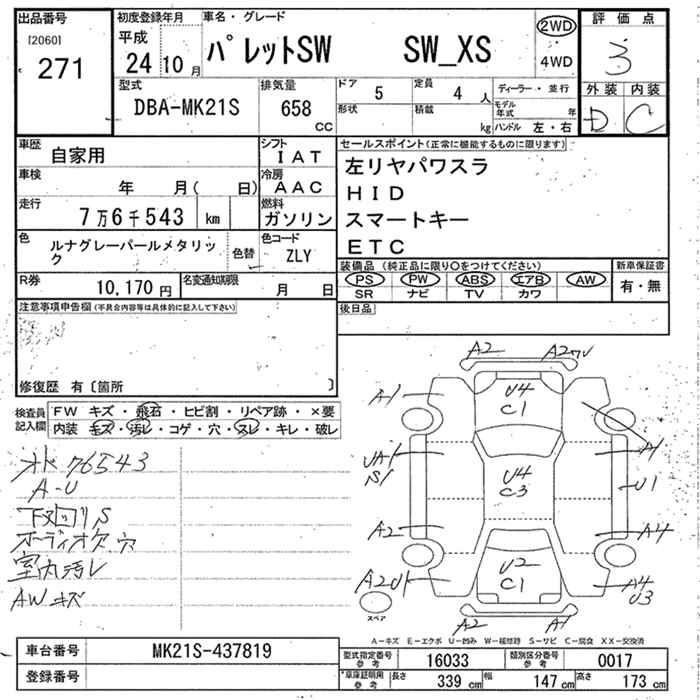 出品番号
[2060]
271
初度登録年月
平成
24 10 月
車名・グレード
パレットSW SW_XS
2WD
4WD
評価点
3
外装 内装
D C
型式
DBA-MK21S
排気量
658
CC
ドア
5
定員
4 人
形状
積載
kg
ディーラー・並行
モデル年式 年
ハンドル 左・右
車歴
自家用
シフト
IAT
車検
年 月( 日)
冷房
AAC
走行
7万6千543 km
燃料
ガソリン
色
ルナグレーパールメタリック
色替
色コード
ZLY
R券
10,170 円
名変通知期限
月 日
セールスポイント(正常に機能するものに限ります)
左リヤパワスラ
HID
スマートキー
ETC
装備品(純正品に限り○をつけてください)
PS PW ABS エアB AW
SR ナビ TV カワ
新車保証書
有・無
後日品
注意事項申告欄(不具合内容等は具体的に記入して下さい)
修復歴 有〔箇所 〕
検査員
記入欄
FW キズ・飛石・ヒビ割・リペア跡・×要
内装 キズ・汚レ・コゲ・穴・スレ・キレ・破レ
メド76543
A-U
下廻りS
オーディオ欠 穴
室内汚レ
AWキズ
A2
A1
U4
C1
A1
U4
C3
U1
A2
A4
U2
C1
A4
U3
A2
A1
スペア
A-キズ E-エクボ U-凹み W-補修跡 S-サビ C-腐食 XX-交換済
車台番号
MK21S-437819
登録番号
型式指定番号
参考
16033
類別区分番号
参考
0017
*車庫証明用
参考
長さ
339 cm
幅
147 cm
高さ
173 cm